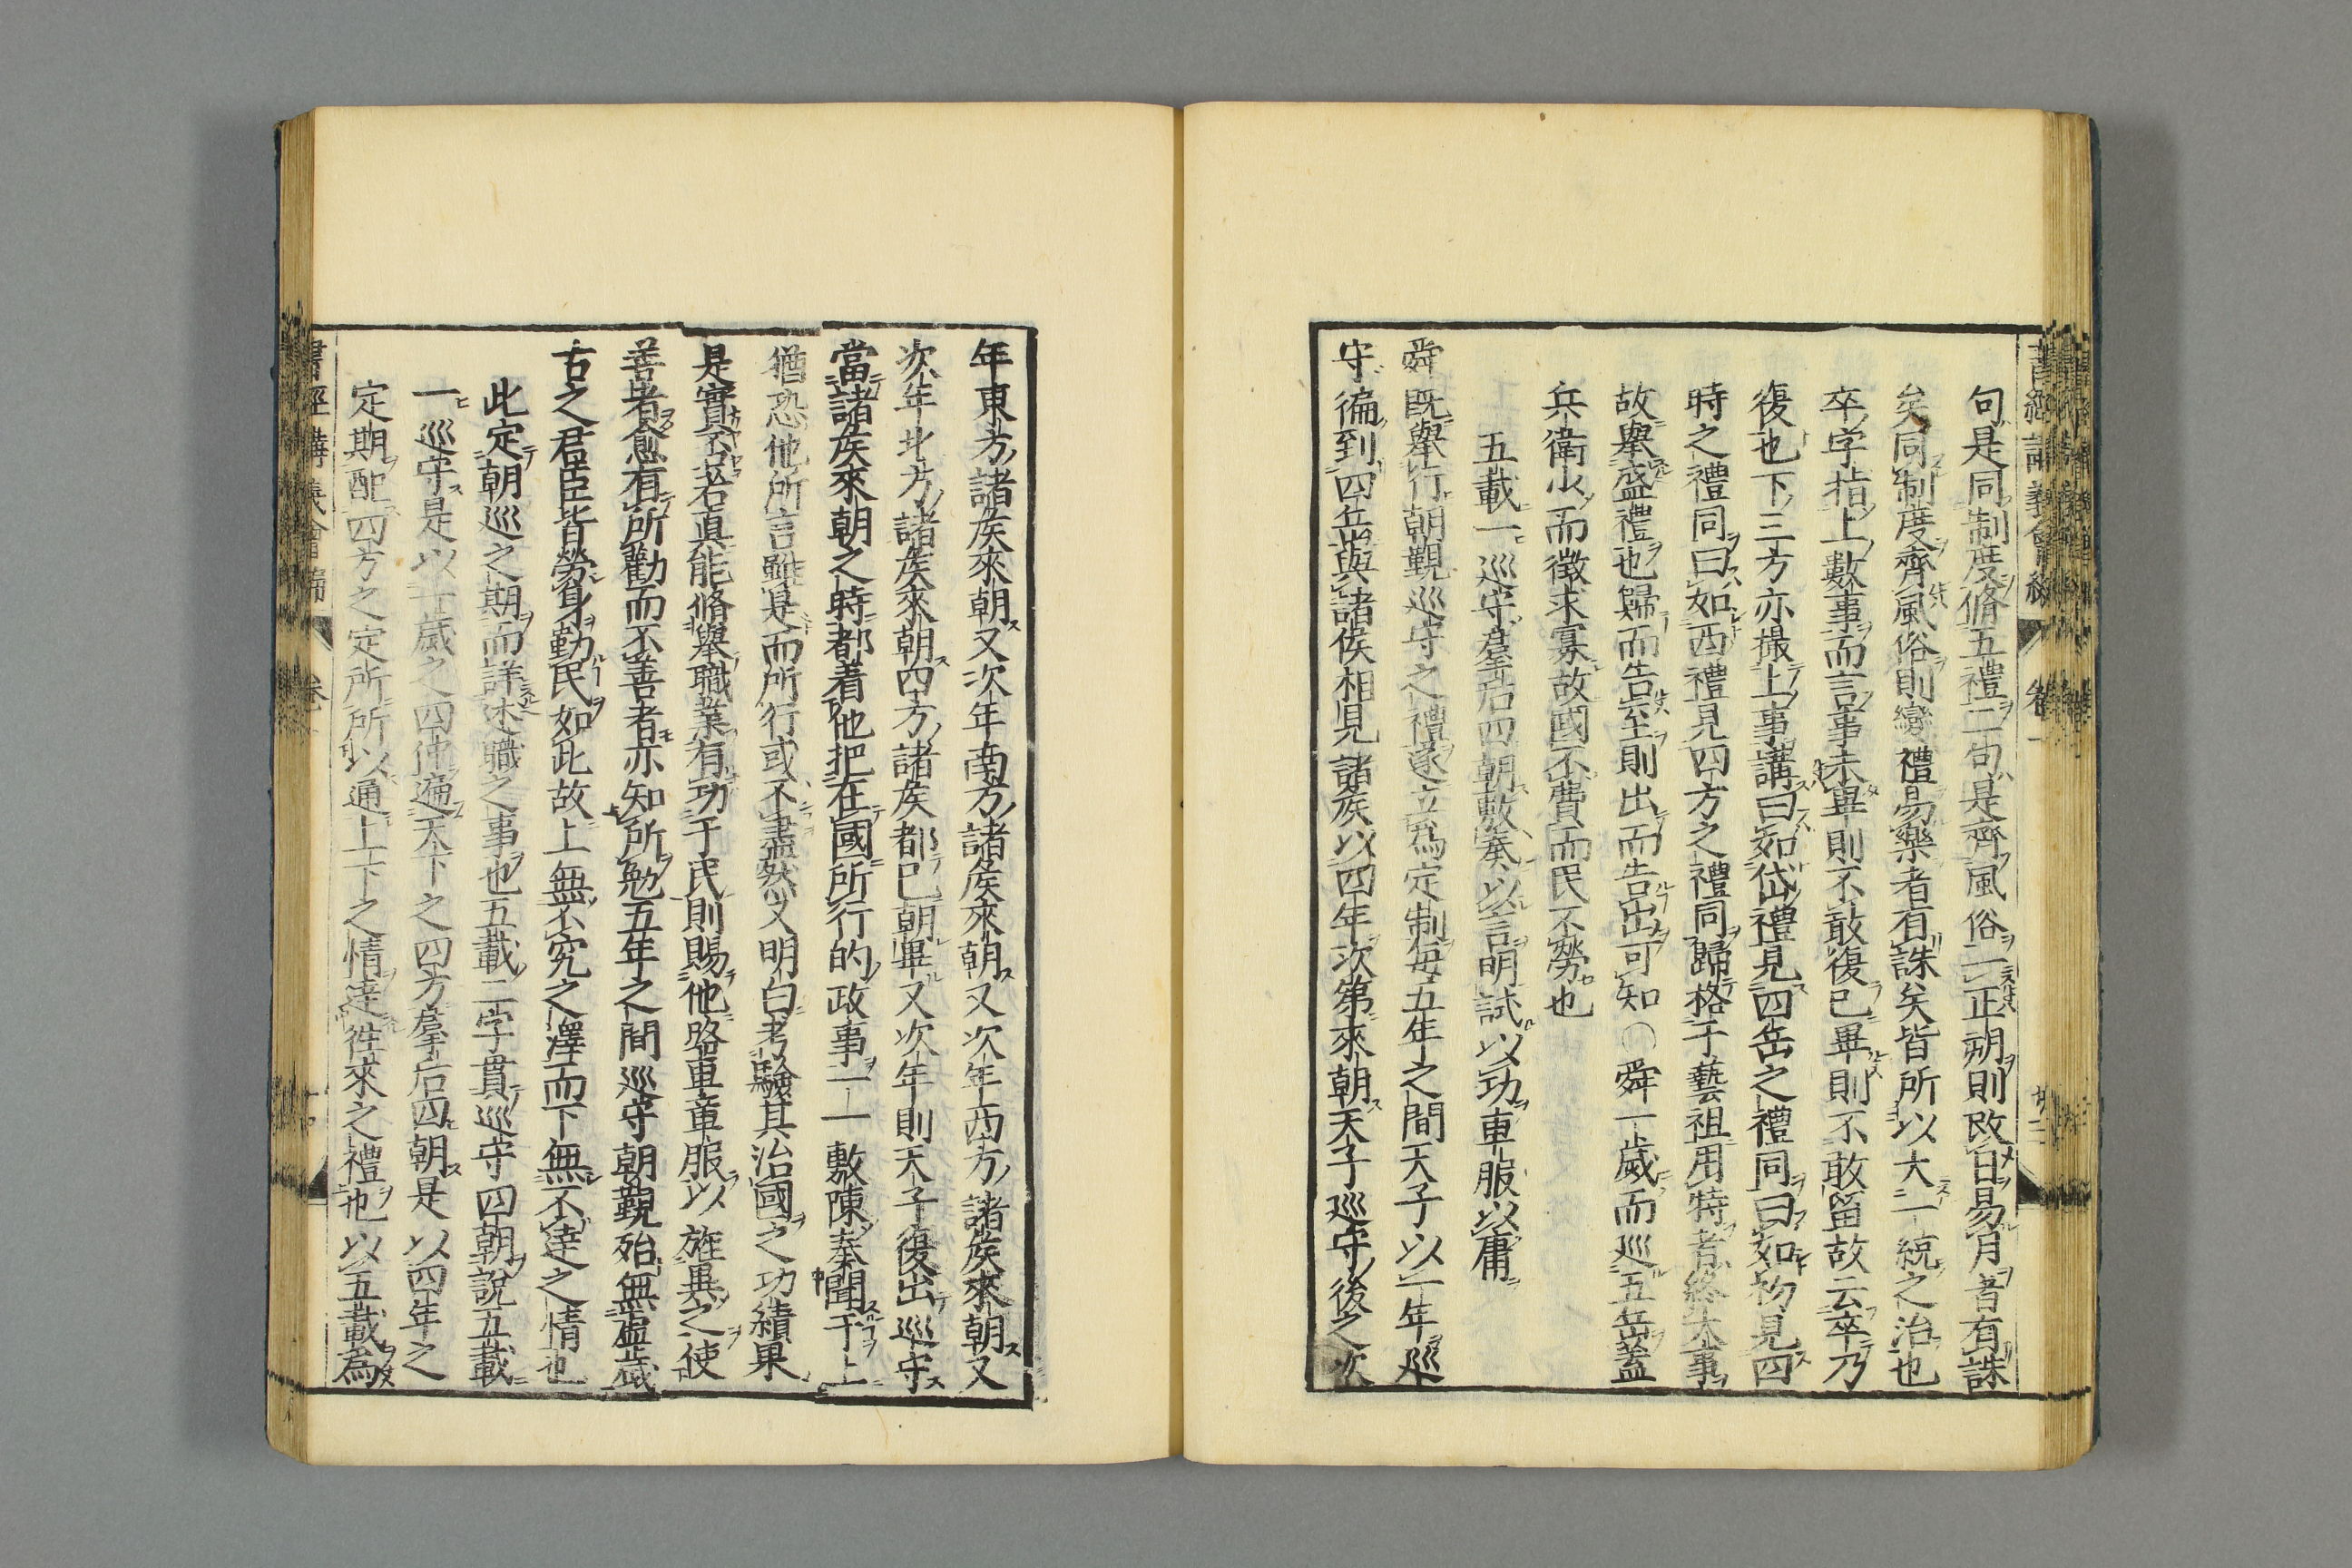 句是同制度脩五禮二句是齊風俗一正朔則改日易月者有誅
矣同制度齊風俗則變禮易樂者有誅矣皆所以大一統之治也
卒字指上數事而言事未畢則不敢復已畢則不敢留故云卒乃
復也下三方亦撮上事講曰如岱禮見四岳之禮同曰如初見四
時之禮同曰如西禮見四方之禮同歸格于藝祖用特者終大事
故舉盛禮也歸而告至則出而告出可知〇舜一歲而巡五岳蓋
兵衛少而徵求寡故國不費而民不勞也
五載一巡守羣后四朝敷奏以言明試以功車服以庸
舜既舉行朝覲巡守之禮遂立為定制每五年之間天子以一年巡
守徧到四岳與諸侯相見諸矦以四年次第來朝天子巡守後之次
年東方諸矦來朝又次年南方諸矦來朝又次年西方諸矦來朝又
次年北方諸矦來朝四方諸矦都已朝畢又次年則天子復出巡守
當諸矦來朝之時都着他把在國所行的政事一一敷陳奏聞于上
猶恐他所言雖是而所行或不盡然又明白考驗其治國之功績果
是實否若真能脩舉職業有功于民則賜他路車章服以旌異之使
善者愈有所勸而不善者亦知所勉五年之間巡守朝覲殆無虛歲
古之君臣皆勞身勤民如此故上無不究之澤而下無不達之情也
此定朝巡之期而詳述職之事也五載二字貫巡守四朝說五載
一巡守是以一歲之四仲遍天下之四方羣后四朝是以四年之
定期配四方之定所所以通上下之情達徃來之禮也以五載為